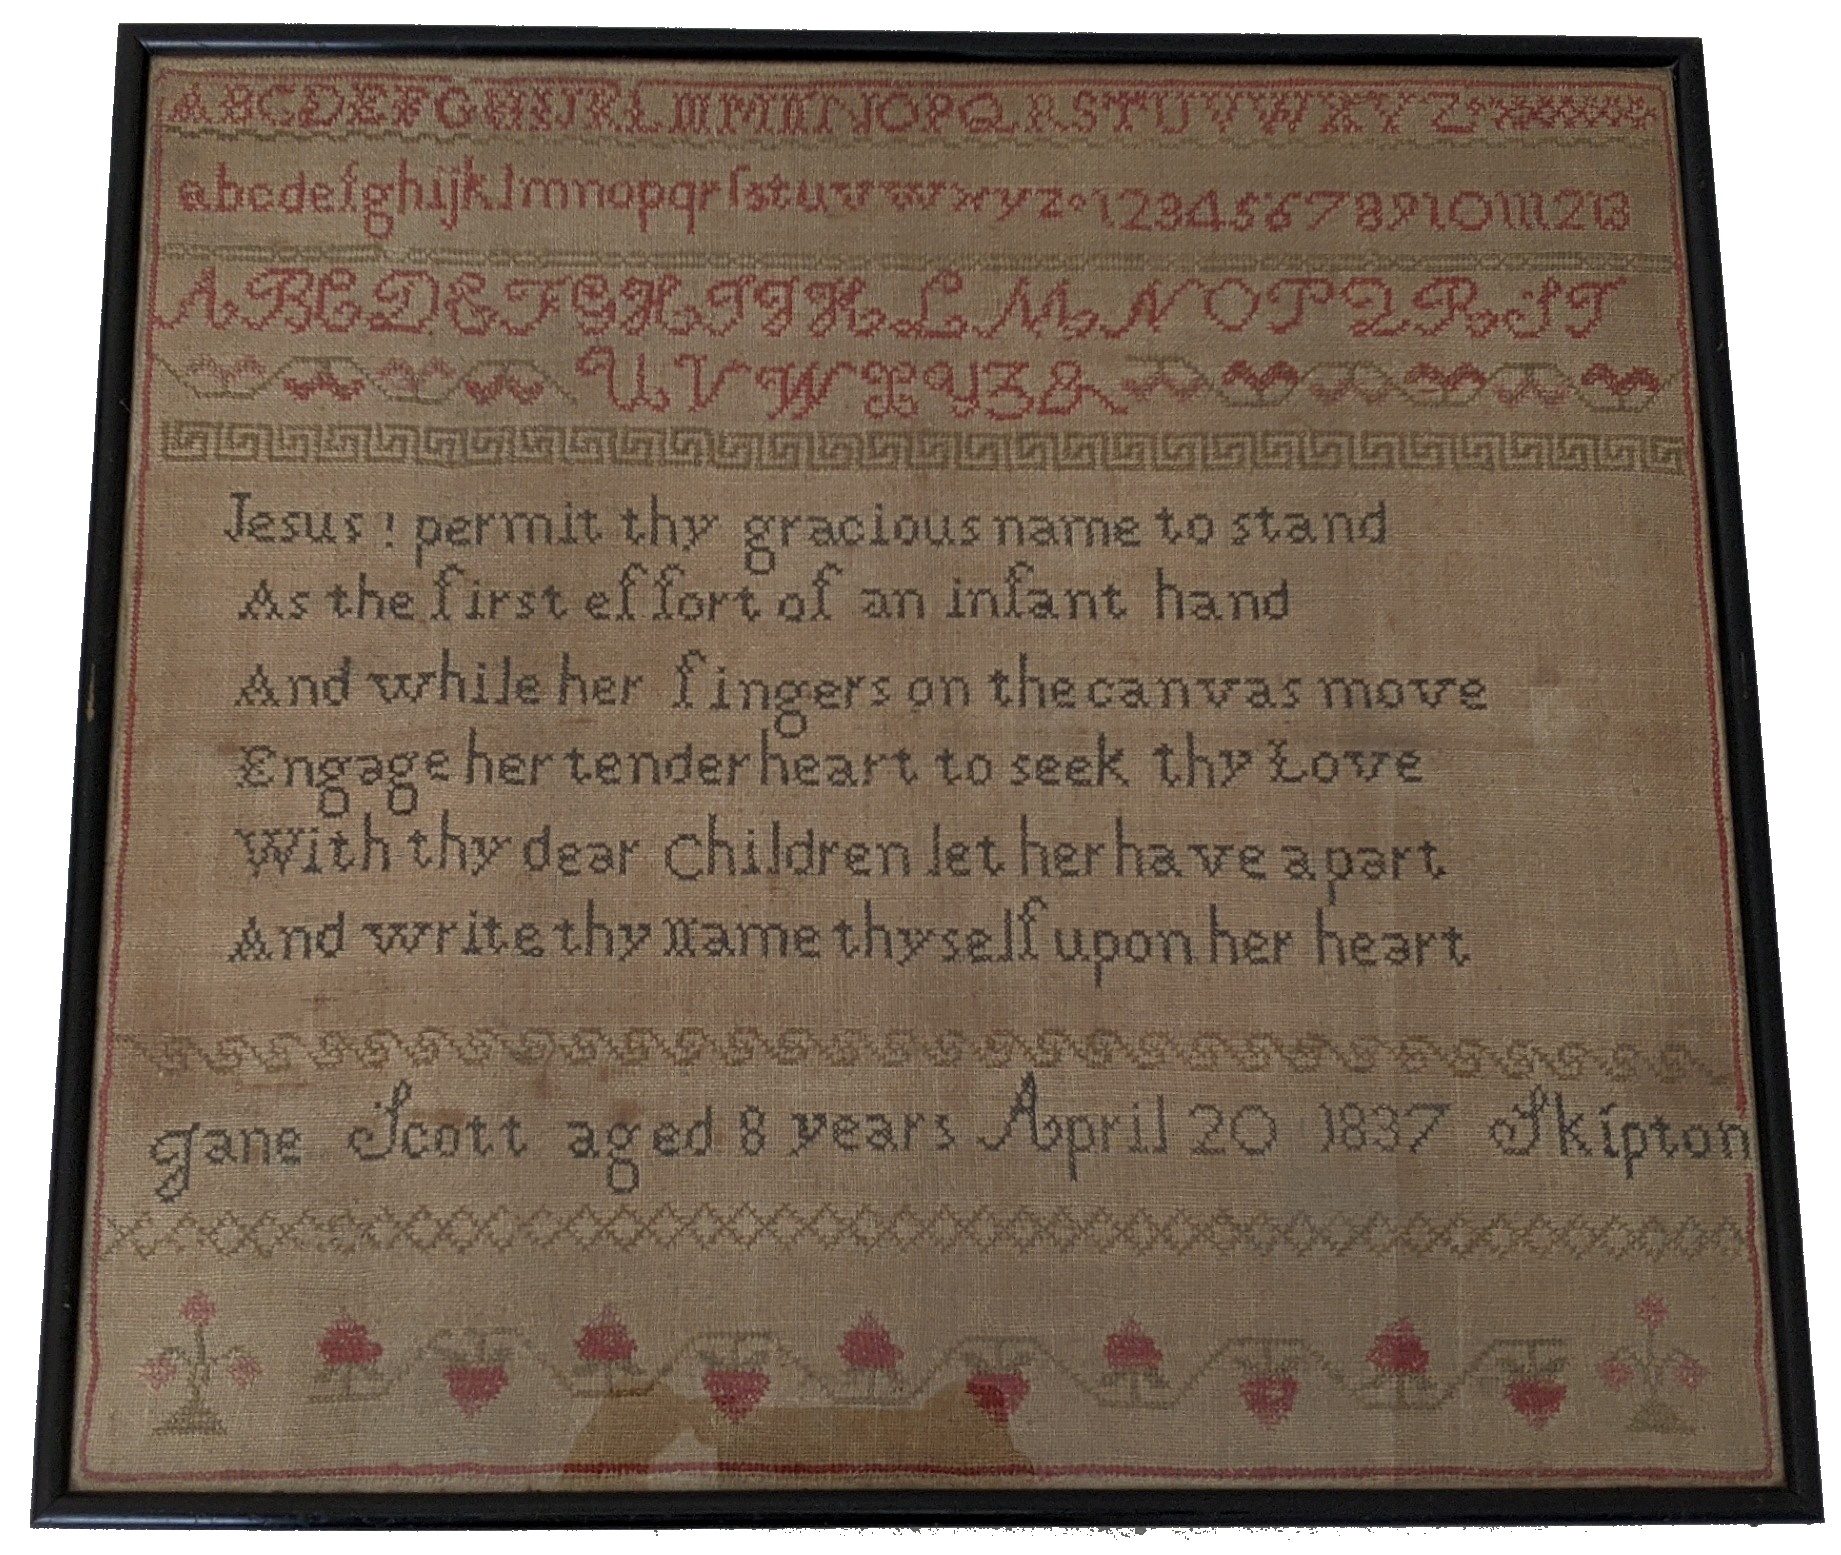 ABCDEFGHIJKLMMNNOPQRSTUVWXYZ
abcdefghijklmnopqrſstuvwxyz 12345678910111213
ABCDEFGHIJKLMNOPQRST
UVWXYZ&
Jesus! permit thy gracious name to stand
As the first effort of an infant hand
And while her fingers on the canvas move
Engage her tender heart to seek thy Love
With thy dear Children let her have a part
And write thy Name thyself upon her heart
Jane Scott aged 8 years April 20 1837 Skipton